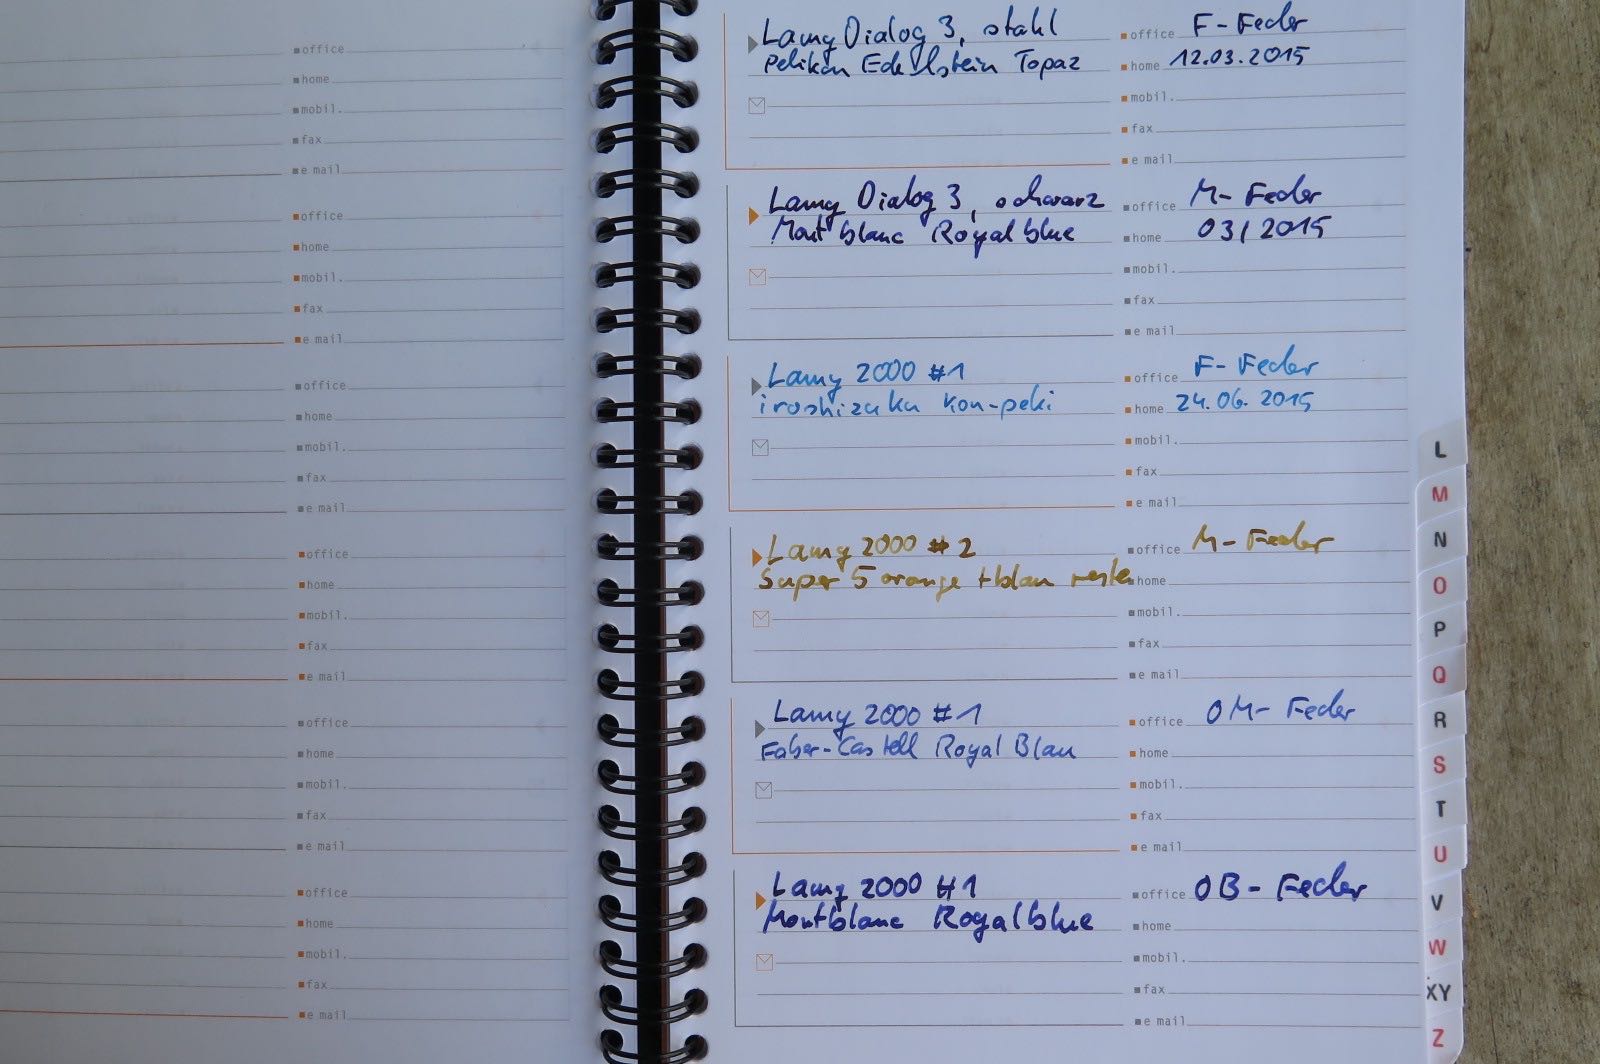 office
home
mobil.
fax
e mail
office
home
mobil.
fax
e mail
office
home
mobil.
fax
e mail
office
home
mobil.
fax
e mail
office
home
mobil.
fax
e mail
office
home
mobil.
fax
e mail
Lamy Dialog 3, stahl office F-Feder
Pelikan Edelstein Topaz home 12.03.2015
mobil.
fax
e mail
Lamy Dialog 3, schwarz office M-Feder
Montblanc Royalblue home 03/2015
mobil.
fax
e mail
Lamy 2000 #1 office F-Feder
iroshizuku kon-peki home 24.06.2015
mobil.
fax
e mail
Lamy 2000 #2 office M-Feder
Super 5 orange + blau reste home
mobil.
fax
e mail
Lamy 2000 #1 office OM-Feder
Faber-Castell Royal Blau home
mobil.
fax
e mail
Lamy 2000 #1 office OB-Feder
Montblanc Royalblue home
mobil.
fax
e mail
L
M
N
O
P
Q
R
S
T
U
V
W
XY
Z